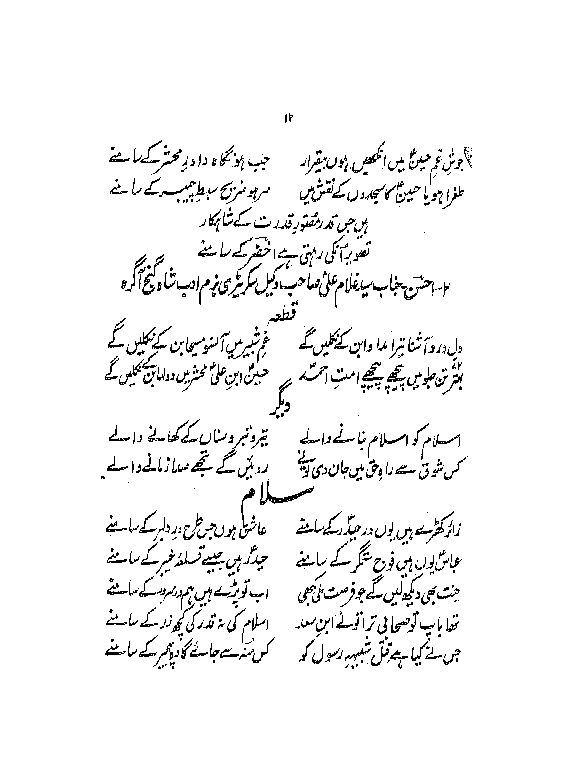 ۱۲
جوشِ غمِ حسینؑ میں آنکھیں ہوں بیقرار جب ہو نگاہ داورِ محشر کے سامنے
طغرا ہو یا حسینؑ کا سجادوں کے نقش ہیں سر ہو ضریح سبطِ پیمبر کے سامنے
ہیں جس قدر مصورِ قدرت کے شاہکار
تصویر آنکی رہتی ہے اخضر کے سامنے
۲۔ احسن جناب سید غلام علی صاحب وکیل سکریٹری بزم ادب شاہ گنج آگرہ
قطعہ
دل درد آشنا تیرا مداوا بن کے نکلیں گے غمِ شبیر میں آنسو مسیحا بن کے نکلیں گے
بہترؔ تن جلو میں پیچھے پیچھے امتِ احمدؐ حسینؑ ابنِ علیؑ محشر میں دولہا بن کے نکلیں گے
دیگر
اسلام کو اسلام بنانے والے تیر و تبر و سناں کے کھانے والے
کس شوق سے راہِ حق میں جان دی تونے روئیں گے تجھے سدا زمانے والے
سلام
زائر کھڑے ہیں یوں درِ حیدرؑ کے سامنے عاشق ہوں جس طرح درِ دلبر کے سامنے
عباسؑ یوں ہیں فوجِ ستمگر کے سامنے حیدرؑ ہیں جیسے قلعۂ خیبر کے سامنے
جنت بھی دیکھ لیں گے جو فرصت ملی کبھی اب تو پڑے ہیں ہم درِ سرور کے سامنے
تھا باپ تو صحابی ترا تونے ابنِ سعد اسلام کی نہ قدر کی کچھ زر کے سامنے
جس نے کیا ہے قتل شبیہہِ رسول کو کس منہ سے جائے گا وہ پیمبر کے سامنے